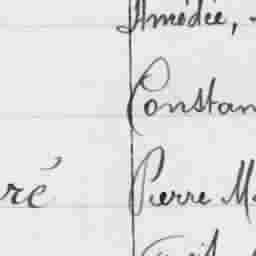 Amédée,
Constan
ré Pierre M